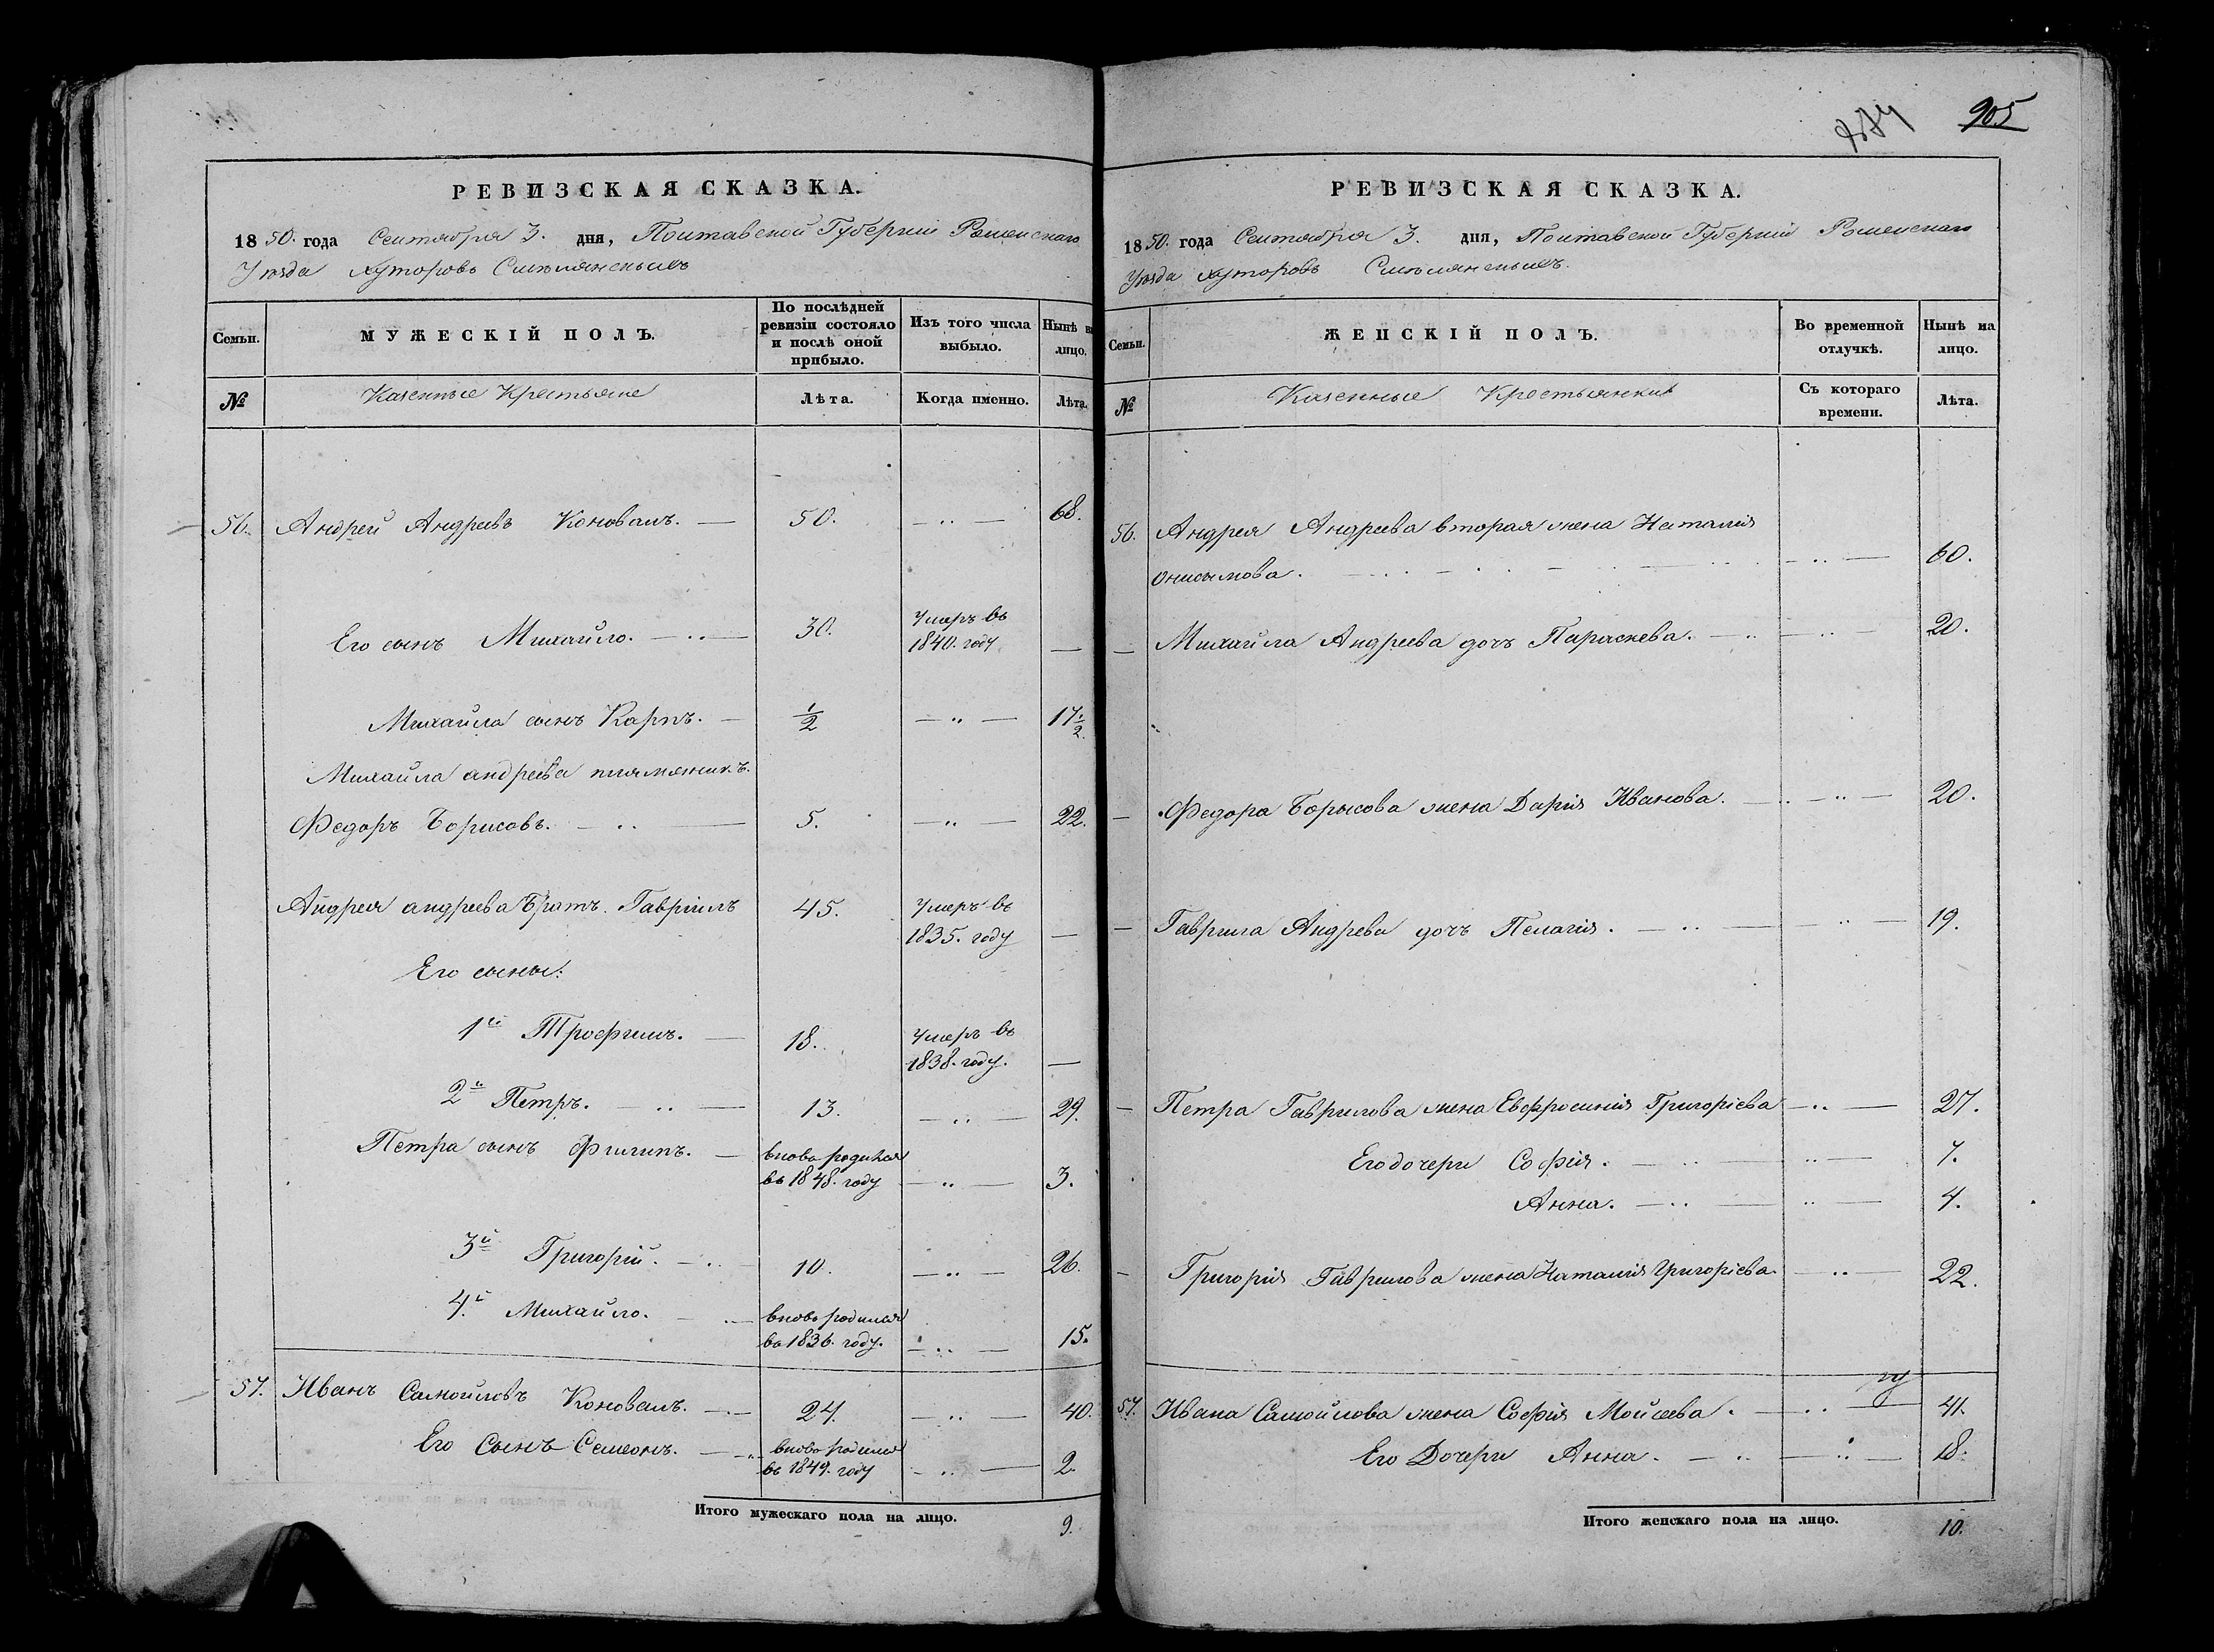 905
РЕВИЗСКАЯ СКАЗКА.
1850. года Сентября 3. дня, Полтавской Губерніи Роменскаго
Уѣзда хуторовъ Смѣлянскихъ
Семьи.
МУЖЕСКІЙ ПОЛЪ.
По послѣдней ревизіи состояло и послѣ оной прибыло.
Изъ того числа выбыло.
Нынѣ на лицо.
№
Казенные Крестьяне
Лѣта.
Когда именно.
Лѣта.
56. Андрей Андреевъ Коновалъ. — 50. — „ — 68.
Его сынъ Михайло. — „ — 30. Умеръ въ
1840. году —
Михайла сынъ Карпъ. — 1/2 — „ — 17 1/2.
Михайла андреева племяникъ.
Федоръ Борисовъ. — „ — 5. — „ — 22.
Андрея андреева Братъ. Гавріилъ 45. Умеръ въ
1835. году —
Его сыны:
1й Трофимъ. — 18. Умеръ въ
1838. году. —
2й Петръ. — „ — 13. — „ — 29.
Петра сынъ Филипъ. — вновь родился
въ 1848. году — „ — 3.
3й Григорій. — „ — 10. — „ — 26.
4й Михайло. — „ — вновь родился
въ 1836. году. — „ — 15.
57. Иванъ Самойловъ Коновалъ. — „ — 24. — „ — 40.
Его Сынъ Семеонъ. — „ вновь родился
въ 1849. году — „ — 2.
Итого мужескаго пола на лицо. 9.
РЕВИЗСКАЯ СКАЗКА.
1850. года Сентября 3. дня, Полтавской Губерніи Роменскаго
Уѣзда хуторовъ Смѣлянскихъ.
Семьи.
ЖЕНСКІЙ ПОЛЪ.
Во временной отлучкѣ.
Нынѣ на лицо.
№
Казенные Крестьянки
Съ котораго времени.
Лѣта.
56. Андрея Андреева вторая жена Наталія
Онисимова. — „ — 60.
— Михайла Андреева дочь Параскева. — „ — „ — 20.
— Федора Борысова жена Дарія Иванова. — „ — „ — 20.
— Гаврила Андрева дочъ Пелагія. — „ — „ — 19.
— Петра Гаврилова жена Евфросинія Григоріева — „ — 27.
Его дочери Софія. — „ — „ — 7.
Анна. — „ — „ — 4.
— Григорія Гаврилова жена Наталія Григоріева. — „ — 22.
57. Ивана Самойлова жена Софія Мойсеева. — „ — 41.
Его Дочери Анна. — „ — „ — 18.
Итого женскаго пола на лицо. 10.